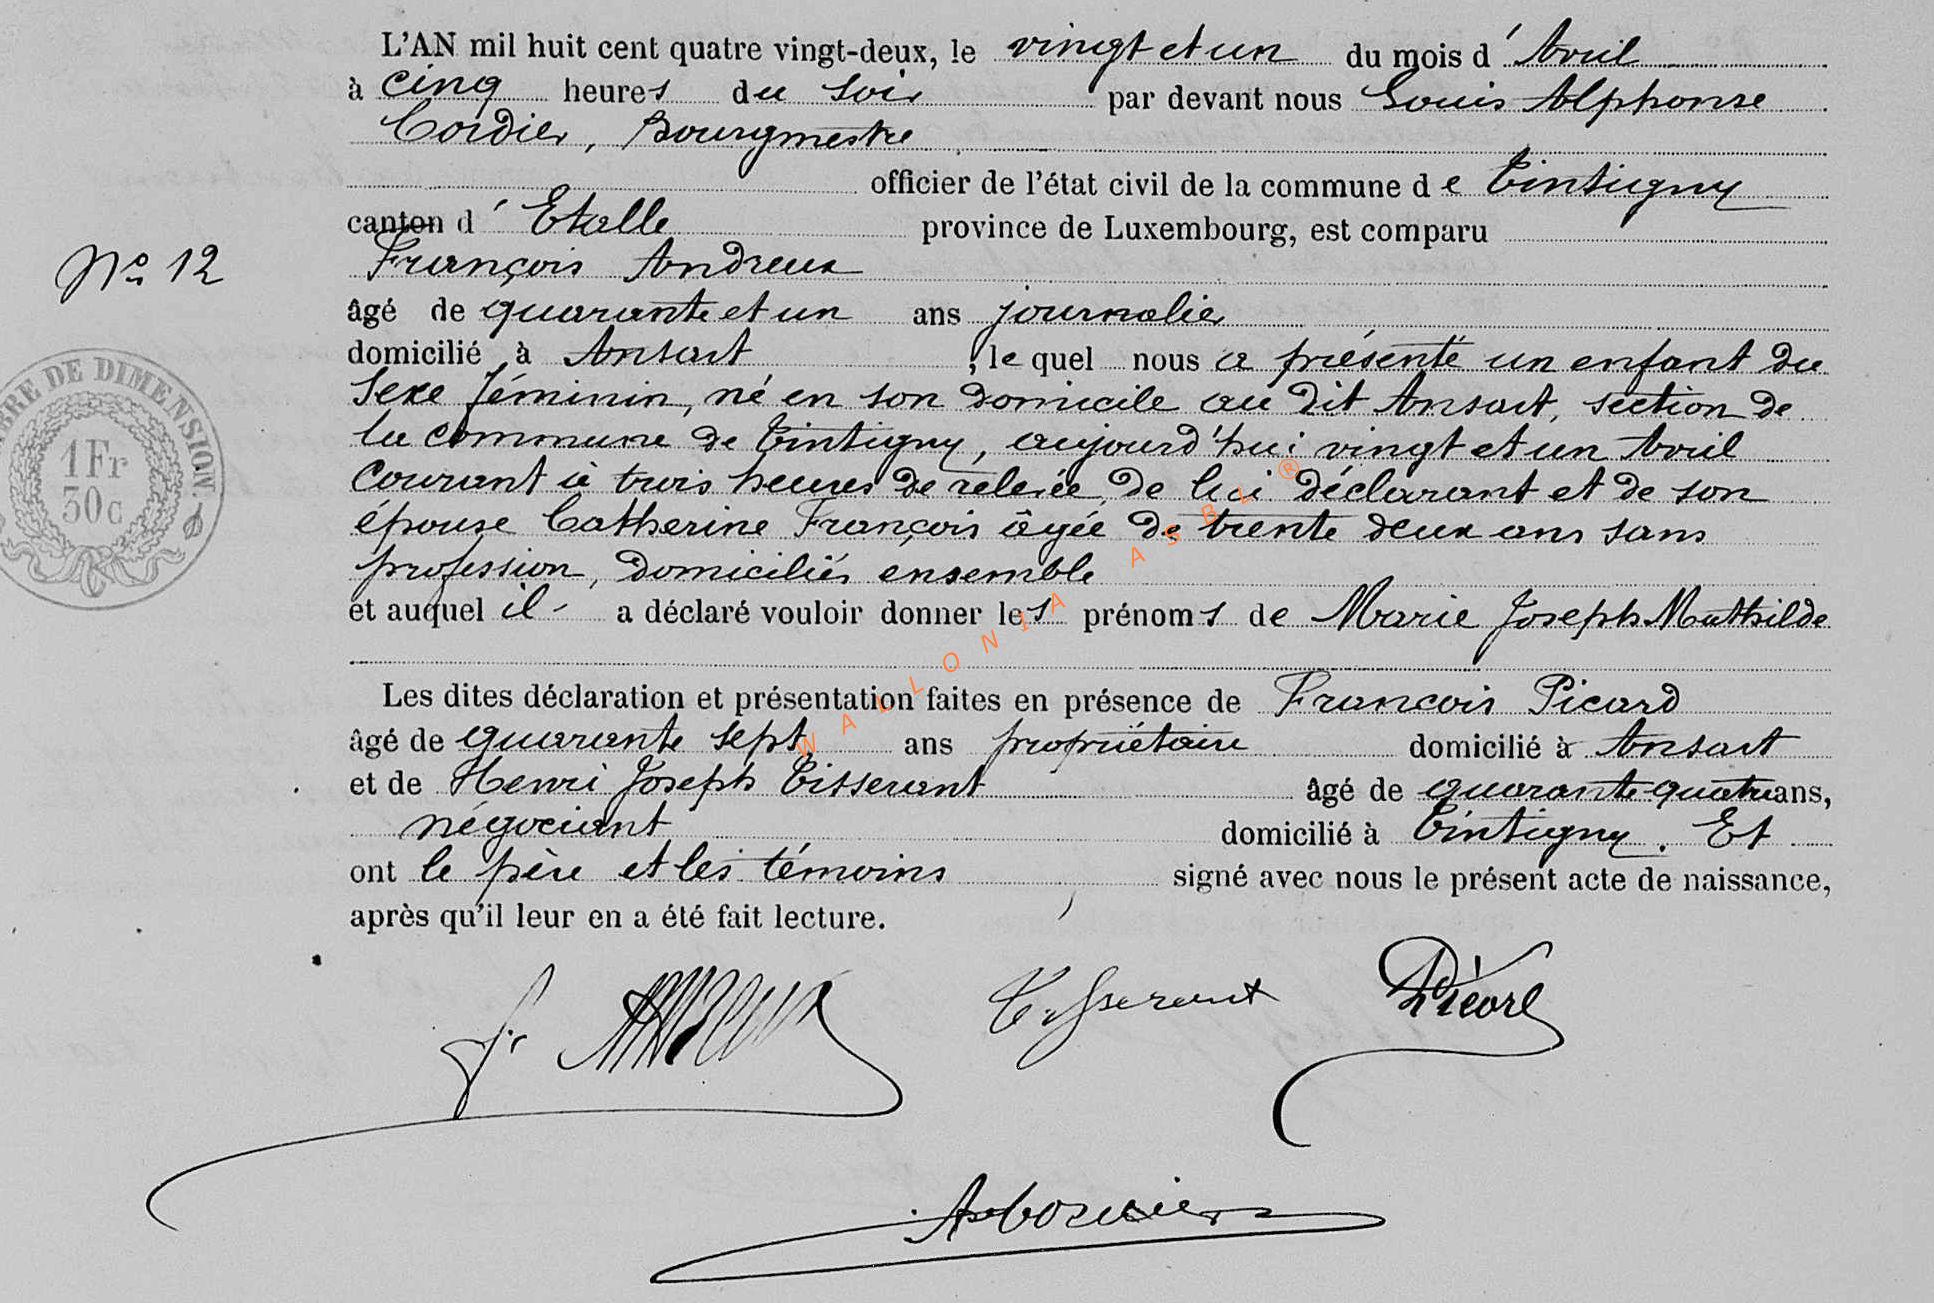 L'AN mil huit cent quatre vingt-deux, le vingt et un du mois d' Avril
à cinq heures du soir par devant nous Louis Alphonse
Cordier, Bourgmestre
officier de l'état civil de la commune de Tintigny
canton d' Etalle province de Luxembourg, est comparu
No 12
François Andreux
âgé de quarante et un ans journalier
domicilié à Ansart, lequel nous a présenté un enfant du
Sexe féminin, né en son domicile au dit Ansart, section de
la commune de Tintigny, aujourd'hui vingt et un Avril
courant à trois heures de relevée, de lui déclarant et de son
épouse Catherine François âgée de trente deux ans sans
profession, domiciliés ensemble
et auquel il a déclaré vouloir donner les prénoms de Marie Joseph Mathilde
Les dites déclaration et présentation faites en présence de François Picard
âgé de quarante sept ans propriétaire domicilié à Ansart
et de Henri Joseph Tisserant âgé de quarante quatre ans,
négociant domicilié à Tintigny. Et
ont le père et les témoins signé avec nous le présent acte de naissance,
après qu'il leur en a été fait lecture.
TIMBRE DE DIMENSION.
1 Fr
30c
WALLONIA ASBL ®
Tisserant